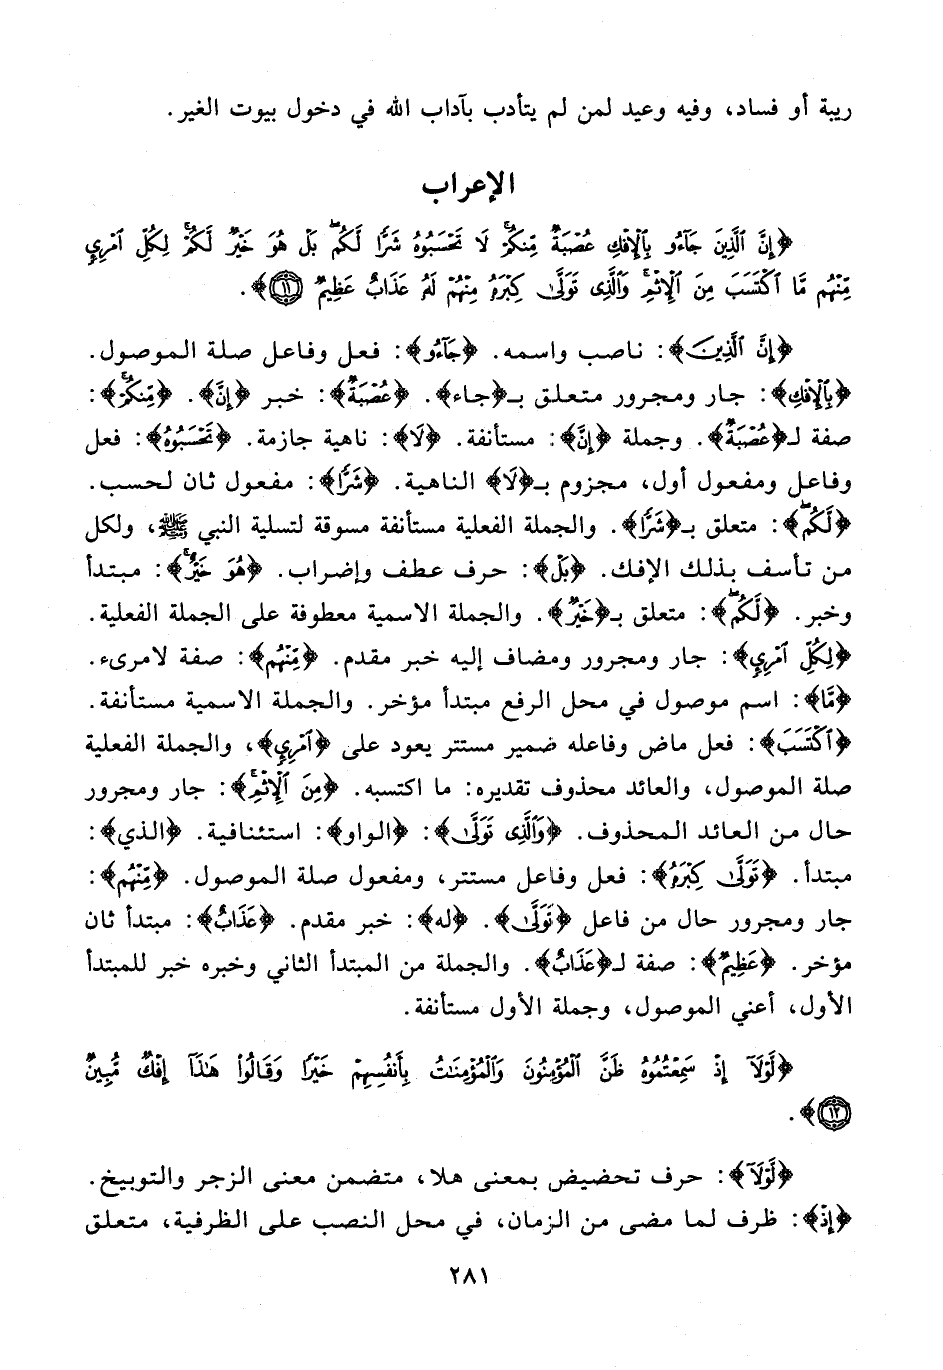 ريبة أو فساد، وفيه وعيد لمن لم يتأدب بآداب الله في دخول بيوت الغير.
الإعراب
﴿إِنَّ ٱلَّذِينَ جَآءُو بِٱلْإِفْكِ عُصْبَةٌ مِّنكُمْ ۚ لَا تَحْسَبُوهُ شَرًّا لَّكُم ۖ بَلْ هُوَ خَيْرٌ لَّكُمْ ۚ لِكُلِّ ٱمْرِئٍ
مِّنْهُم مَّا ٱكْتَسَبَ مِنَ ٱلْإِثْمِ ۚ وَٱلَّذِى تَوَلَّىٰ كِبْرَهُۥ مِنْهُمْ لَهُۥ عَذَابٌ عَظِيمٌ ١١﴾.
﴿إِنَّ ٱلَّذِينَ﴾: ناصب واسمه. ﴿جَآءُو﴾: فعل وفاعل صلة الموصول.
﴿بِٱلْإِفْكِ﴾: جار ومجرور متعلق بـ﴿جاء﴾. ﴿عُصْبَةٌ﴾: خبر ﴿إِنَّ﴾. ﴿مِّنكُمْ ۚ﴾:
صفة لـ﴿عُصْبَةٌ﴾. وجملة ﴿إِنَّ﴾: مستأنفة. ﴿لَا﴾: ناهية جازمة. ﴿تَحْسَبُوهُ﴾: فعل
وفاعل ومفعول أول، مجزوم بـ﴿لَا﴾ الناهية. ﴿شَرًّا﴾: مفعول ثان لحسب.
﴿لَّكُم ۖ﴾: متعلق بـ﴿شَرًّا﴾. والجملة الفعلية مستأنفة مسوقة لتسلية النبي ﷺ، ولكل
من تأسف بذلك الإفك. ﴿بَلْ﴾: حرف عطف وإضراب. ﴿هُوَ خَيْرٌ ۚ﴾: مبتدأ
وخبر. ﴿لَّكُم ۖ﴾: متعلق بـ﴿خَيْرٌ﴾. والجملة الاسمية معطوفة على الجملة الفعلية.
﴿لِكُلِّ ٱمْرِئٍ﴾: جار ومجرور ومضاف إليه خبر مقدم. ﴿مِّنْهُم﴾: صفة لامرىء.
﴿مَّا﴾: اسم موصول في محل الرفع مبتدأ مؤخر. والجملة الاسمية مستأنفة.
﴿ٱكْتَسَبَ﴾: فعل ماض وفاعله ضمير مستتر يعود على ﴿ٱمْرِئٍ﴾، والجملة الفعلية
صلة الموصول، والعائد محذوف تقديره: ما اكتسبه. ﴿مِنَ ٱلْإِثْمِ ۚ﴾: جار ومجرور
حال من العائد المحذوف. ﴿وَٱلَّذِى تَوَلَّىٰ﴾: ﴿الواو﴾: استئنافية. ﴿الذي﴾:
مبتدأ. ﴿تَوَلَّىٰ كِبْرَهُۥ﴾: فعل وفاعل مستتر، ومفعول صلة الموصول. ﴿مِّنْهُم﴾:
جار ومجرور حال من فاعل ﴿تَوَلَّىٰ﴾. ﴿له﴾: خبر مقدم. ﴿عَذَابٌ﴾: مبتدأ ثان
مؤخر. ﴿عَظِيمٌ﴾: صفة لـ﴿عَذَابٌ﴾. والجملة من المبتدأ الثاني وخبره خبر للمبتدأ
الأول، أعني الموصول، وجملة الأول مستأنفة.
﴿لَّوْلَآ إِذْ سَمِعْتُمُوهُ ظَنَّ ٱلْمُؤْمِنُونَ وَٱلْمُؤْمِنَٰتُ بِأَنفُسِهِمْ خَيْرًا وَقَالُوا۟ هَٰذَآ إِفْكٌ مُّبِينٌ
١٢﴾.
﴿لَّوْلَآ﴾: حرف تحضيض بمعنى هلا، متضمن معنى الزجر والتوبيخ.
﴿إِذْ﴾: ظرف لما مضى من الزمان، في محل النصب على الظرفية، متعلق
٢٨١